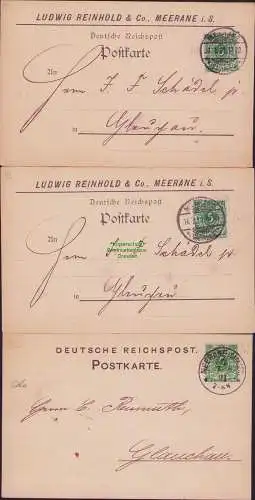 LUDWIG REINHOLD & Co., MEERANE i. S.
Deutsche Reichspost
Postkarte
An
Herrn J. F. Schädel jr.
Glauchau.
LUDWIG REINHOLD & Co., MEERANE i. S.
Deutsche Reichspost
Postkarte
An
Herrn Schädel jr
Glauchau
DEUTSCHE REICHSPOST.
POSTKARTE.
An
Herrn E.
Glauchau.